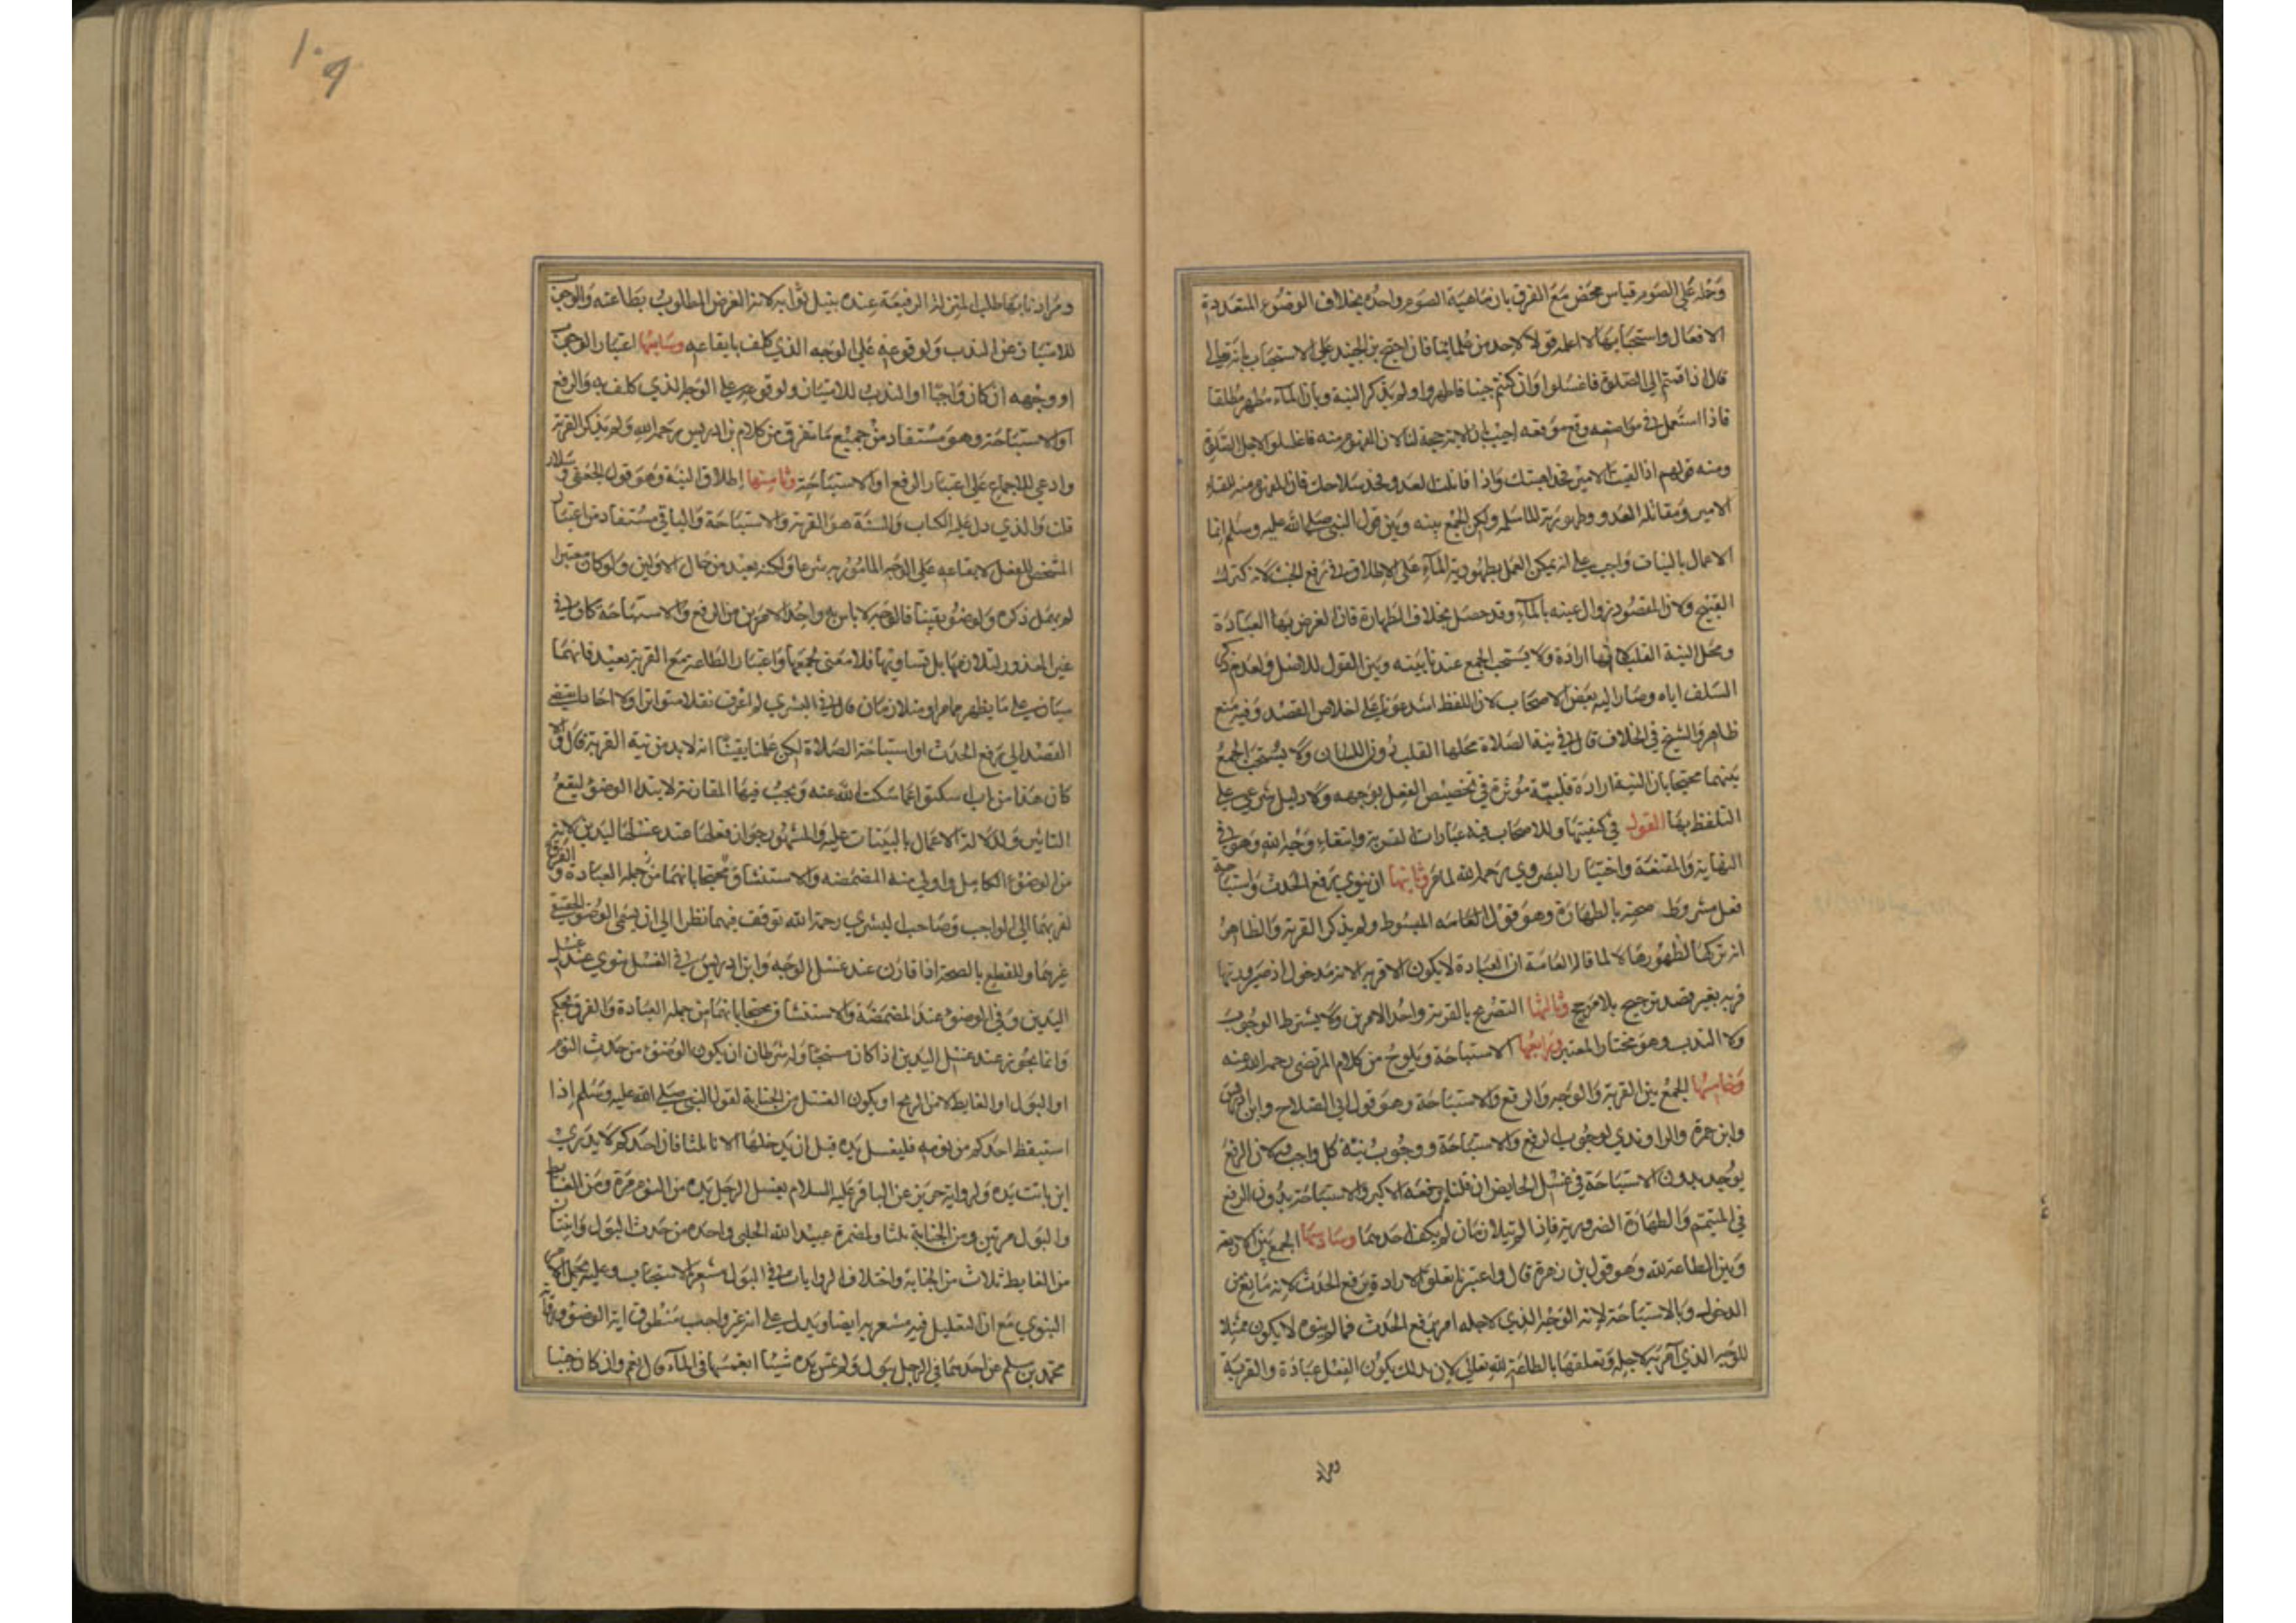 وحمله على الصوم قياس محض مع الفرق بان ماهية الصوم واحدة بخلاف الوضوء المتعددة
الافعال واستحبابها لا اعلمه قولا لاحد من علمائنا فان احتج بن الجنيد على الاستحباب بانه تعالى
قال اذا قمتم الى الصلوة فاغسلوا وان كنتم جنبا فاطهروا ولم يذكر النية وبان الماء مطهر مطلقا
فاذا استعمل في مواضعه وقع موقعه اجيب بان الاية حجة لنا لان المفهوم منه فاغسلوا لاجل الصلوة
ومنه قولهم اذا لقيت الامير فخذ اهبتك واذا قاتلت العدو فخذ سلاحك فان المفهوم منه للقاء
الامير ومقاتلة العدو وطهورية الماء مسلمة ولكن الجمع بينه وبين قول النبي صلى الله عليه وسلم انما
الاعمال بالنيات واجب على انه يمكن العمل بطهورية الماء على الاطلاق في رفع الخبث لانه كترك
القبيح ولان المقصود زوال عينه بالماء وقد حصل بخلاف الطهارة فان الغرض بها العبادة
ومحل النية القلب لانها ارادة ولا يستحب الجمع عندنا بينه وبين القول للاصل ولعدم ذكر
السلف اياه وصار اليه بعض الاصحاب لان اللفظ اشد عونا على اخلاص القصد وفيه منع
ظاهر والشيخ في الخلاف قال في نية الصلاة محلها القلب دون اللسان ولا يستحب الجمع
بينهما محتجا بان النية ارادة قلبية مؤثرة في تخصيص الفعل بوجهه ولا دليل شرعي على
التلفظ بها القول في كيفيتها وللاصحاب فيه عبارات القربة وابتغاء وجه الله وهو في
النهاية والمقنعة واختيار البصروي رحمه الله لما مر وثانيها ان ينوي رفع الحدث واستباحة
فعل مشروط صحته بالطهارة وهو قول المبسوط ولم يذكر القربة والظاهر
انه تركها لظهورها لا لما قاله العامة ان العبادة لا يكون الا قربة لانه مدخول اذ صيرورتها
قربة بغير قصد ترجيح بلا مرجح وثالثها التصريح بالقربة واحد الامرين ولا يشترط الوجوب
ولا الندب وهو مختار المعتبر ورابعها الاستباحة ويلوح من كلام المرتضى رحمه الله
وخامسها الجمع بين القربة والوجه والرفع والاستباحة وهو قول ابي الصلاح وابن البراج
وابن حمزة والراوندي لوجوب الرفع والاستباحة ووجوب نية كل واجب ولان الرفع
يوجد بدون الاستباحة في غسل الحائض ان قلنا برفعه الاكبر والاستباحة بدون الرفع
في المتيمم والطهارة الضرورية فاذا لم يتلازمان لم يكف احدهما وسادسها الجمع بين الاربعة
وبين الطاعة لله وهو قول بن زهرة قال واعتبرنا تعلق الارادة برفع الحدث لانه مانع من
الدخول وبالاستباحة لانه الوجه الذي لاجله امر برفع الحدث فما لم ينوه لا يكون ممتثلا
للوجه الذي امر به لاجله وتعلقها بالطاعة لله تعالى لان بذلك يكون الفعل عبادة والقربة
ومراد
١٠٩
ومرادنا بها طلب المنزلة الرفيعة عنده بنيل ثوابه لانه الغرض المطلوب بطاعته والوجوب
للامتياز عن الندب ولوقوعه على الوجه الذي كلف بايقاعه وسابعها اعتبار الوجوب
او وجهه ان كان واجبا او الندب للامتياز ولوقوعه على الوجه الذي كلف به والرفع
او الاستباحة وهو مستفاد من جميع ما تفرق من كلام بن ادريس رحمه الله ولم يذكر القربة
وادعى الاجماع على اعتبار الرفع او الاستباحة وثامنها اطلاق النية وهو قول الجعفي وسلار
قلت والذي دل عليه الكتاب والسنة هو القربة والاستباحة والباقي مستفاد من اعتبار
المشخص للفعل لايقاعه على الوجه المامور به شرعا ولكنه بعيد من حال الاولين ولو كان معتبرا
لم يهمل ذكره ولو نوى يقينا فالوجه لا باس به واحد الامرين من الرفع والاستباحة كاف في
غير المعذور لتلازمهما بل تساويهما فلا معنى لجمعهما واعتبار الطاعة مع القربة بعيد فانهما
سيان على ما يظهر مما مر او متلازمان قال في البشرى لم اعرف نقلا متواترا ولا احادا يقتضي
القصد الى رفع الحدث او استباحة الصلاة لكن علمنا يقينا انه لابد من نية القربة قال والا
كان هذا من باب اسكتوا عما سكت الله عنه ويجب فيها المقارنة لابتداء الوضوء ليقع
التاثير ولدلالة الاعمال بالنيات عليه والمشهور جواز فعلها عند غسل اليدين لانه
من الوضوء الكامل واولى منه المضمضة والاستنشاق محتجا بانهما من جملة العبادة و
لقربهما الى الواجب وصاحب البشرى رحمه الله توقف فيهما نظرا الى ان مسمى الوضوء الحقيقي
غيرهما وللقطع بالصحة اذا قارن عند غسل الوجه وابن ادريس في الغسل ينوي عند غسل
اليدين وفي الوضوء عند المضمضة والاستنشاق محتجا بانهما من جملة العبادة والفرق تحكم
وانما يجوز عند غسل اليدين اذا كان مستحبا وله شرطان ان يكون الوضوء من حدث النوم
او البول او الغايط لا من الريح او يكون الغسل من الجنابة لقول النبي صلى الله عليه وسلم اذا
استيقظ احدكم من نومه فليغسل يده قبل ان يدخلها الاناء ثلثا فان احدكم لا يدري
اين باتت يده ولرواية حريز عن الباقر عليه السلام يغسل الرجل يده من النوم مرة ومن الغايط
والبول مرتين ومن الجنابة ثلثا ولمضمرة عبيد الله الحلبي واحدة من حدث البول واثنتان
من الغايط ثلاث من الجنابة واختلاف الروايات في البول مشعر بالاستحباب وعليه يحمل الامر
النبوي مع ان التعليل فيه مشعر به ايضا ويدل على انه غير واجب منطوق اية الوضوء ورواية
محمد بن مسلم عن احدهما في الرجل يبول ولم يمس يده شيئا ايغمسها في الماء قال نعم وان كان جنبا